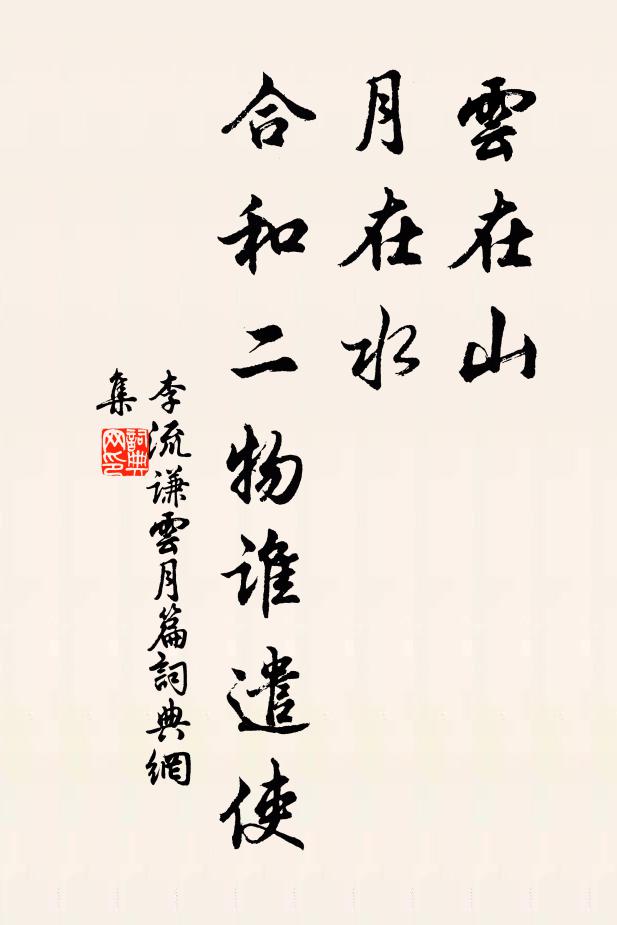 雲在山
月在水
合和二物誰遣使
李流謙雲月篇詞典網
集
詞典
网印